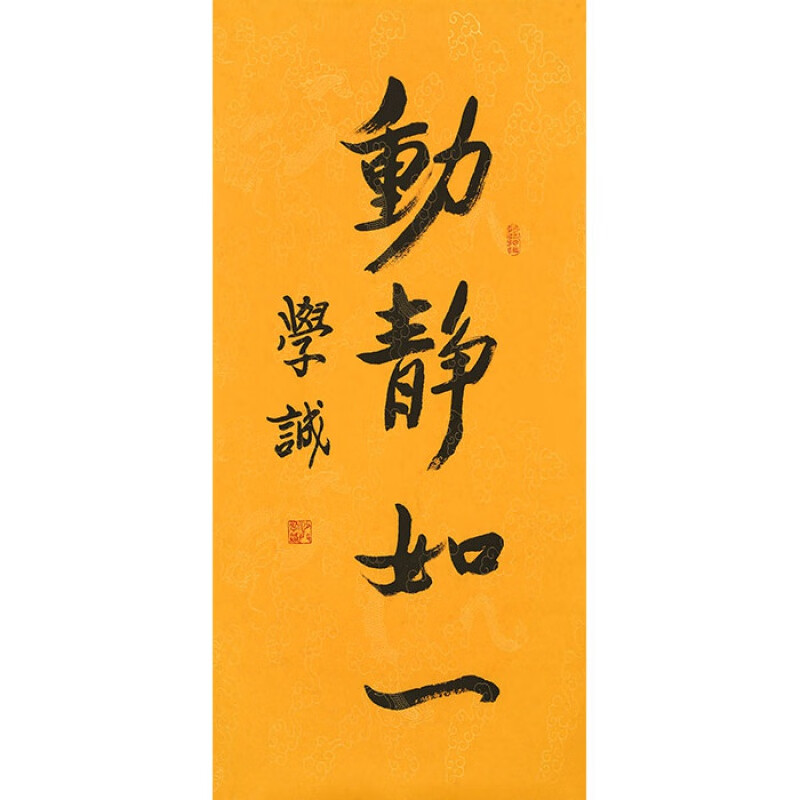 動靜如一
學誠